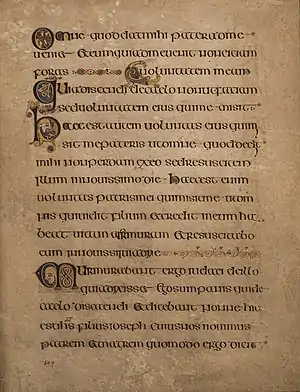 Omne quod dat mihi pater ad me
veniet et eum qui ad me venit non eiciam
foras
Quia discendi de caelo non ut faciam
sed voluntatem eius qui me misit
Haec est autem voluntas eius qui
sit me patris ut omne quod dedit
mihi non perdam ex eo sed resuscitem
illum in novissimo die Haec est enim
voluntas patris mei qui misit me ut om
nis qui videt filium et credit in eum ha
beat vitam aeternam et resuscitabo
eum in novissimo die
Murmurabant ergo iudaei de illo
quia dixisset ego sum panis qui de
caelo discendi et dicebant nonne hic
est ihs filius ioseph cuius nos novimus
patrem et matrem quomodo ergo dicit